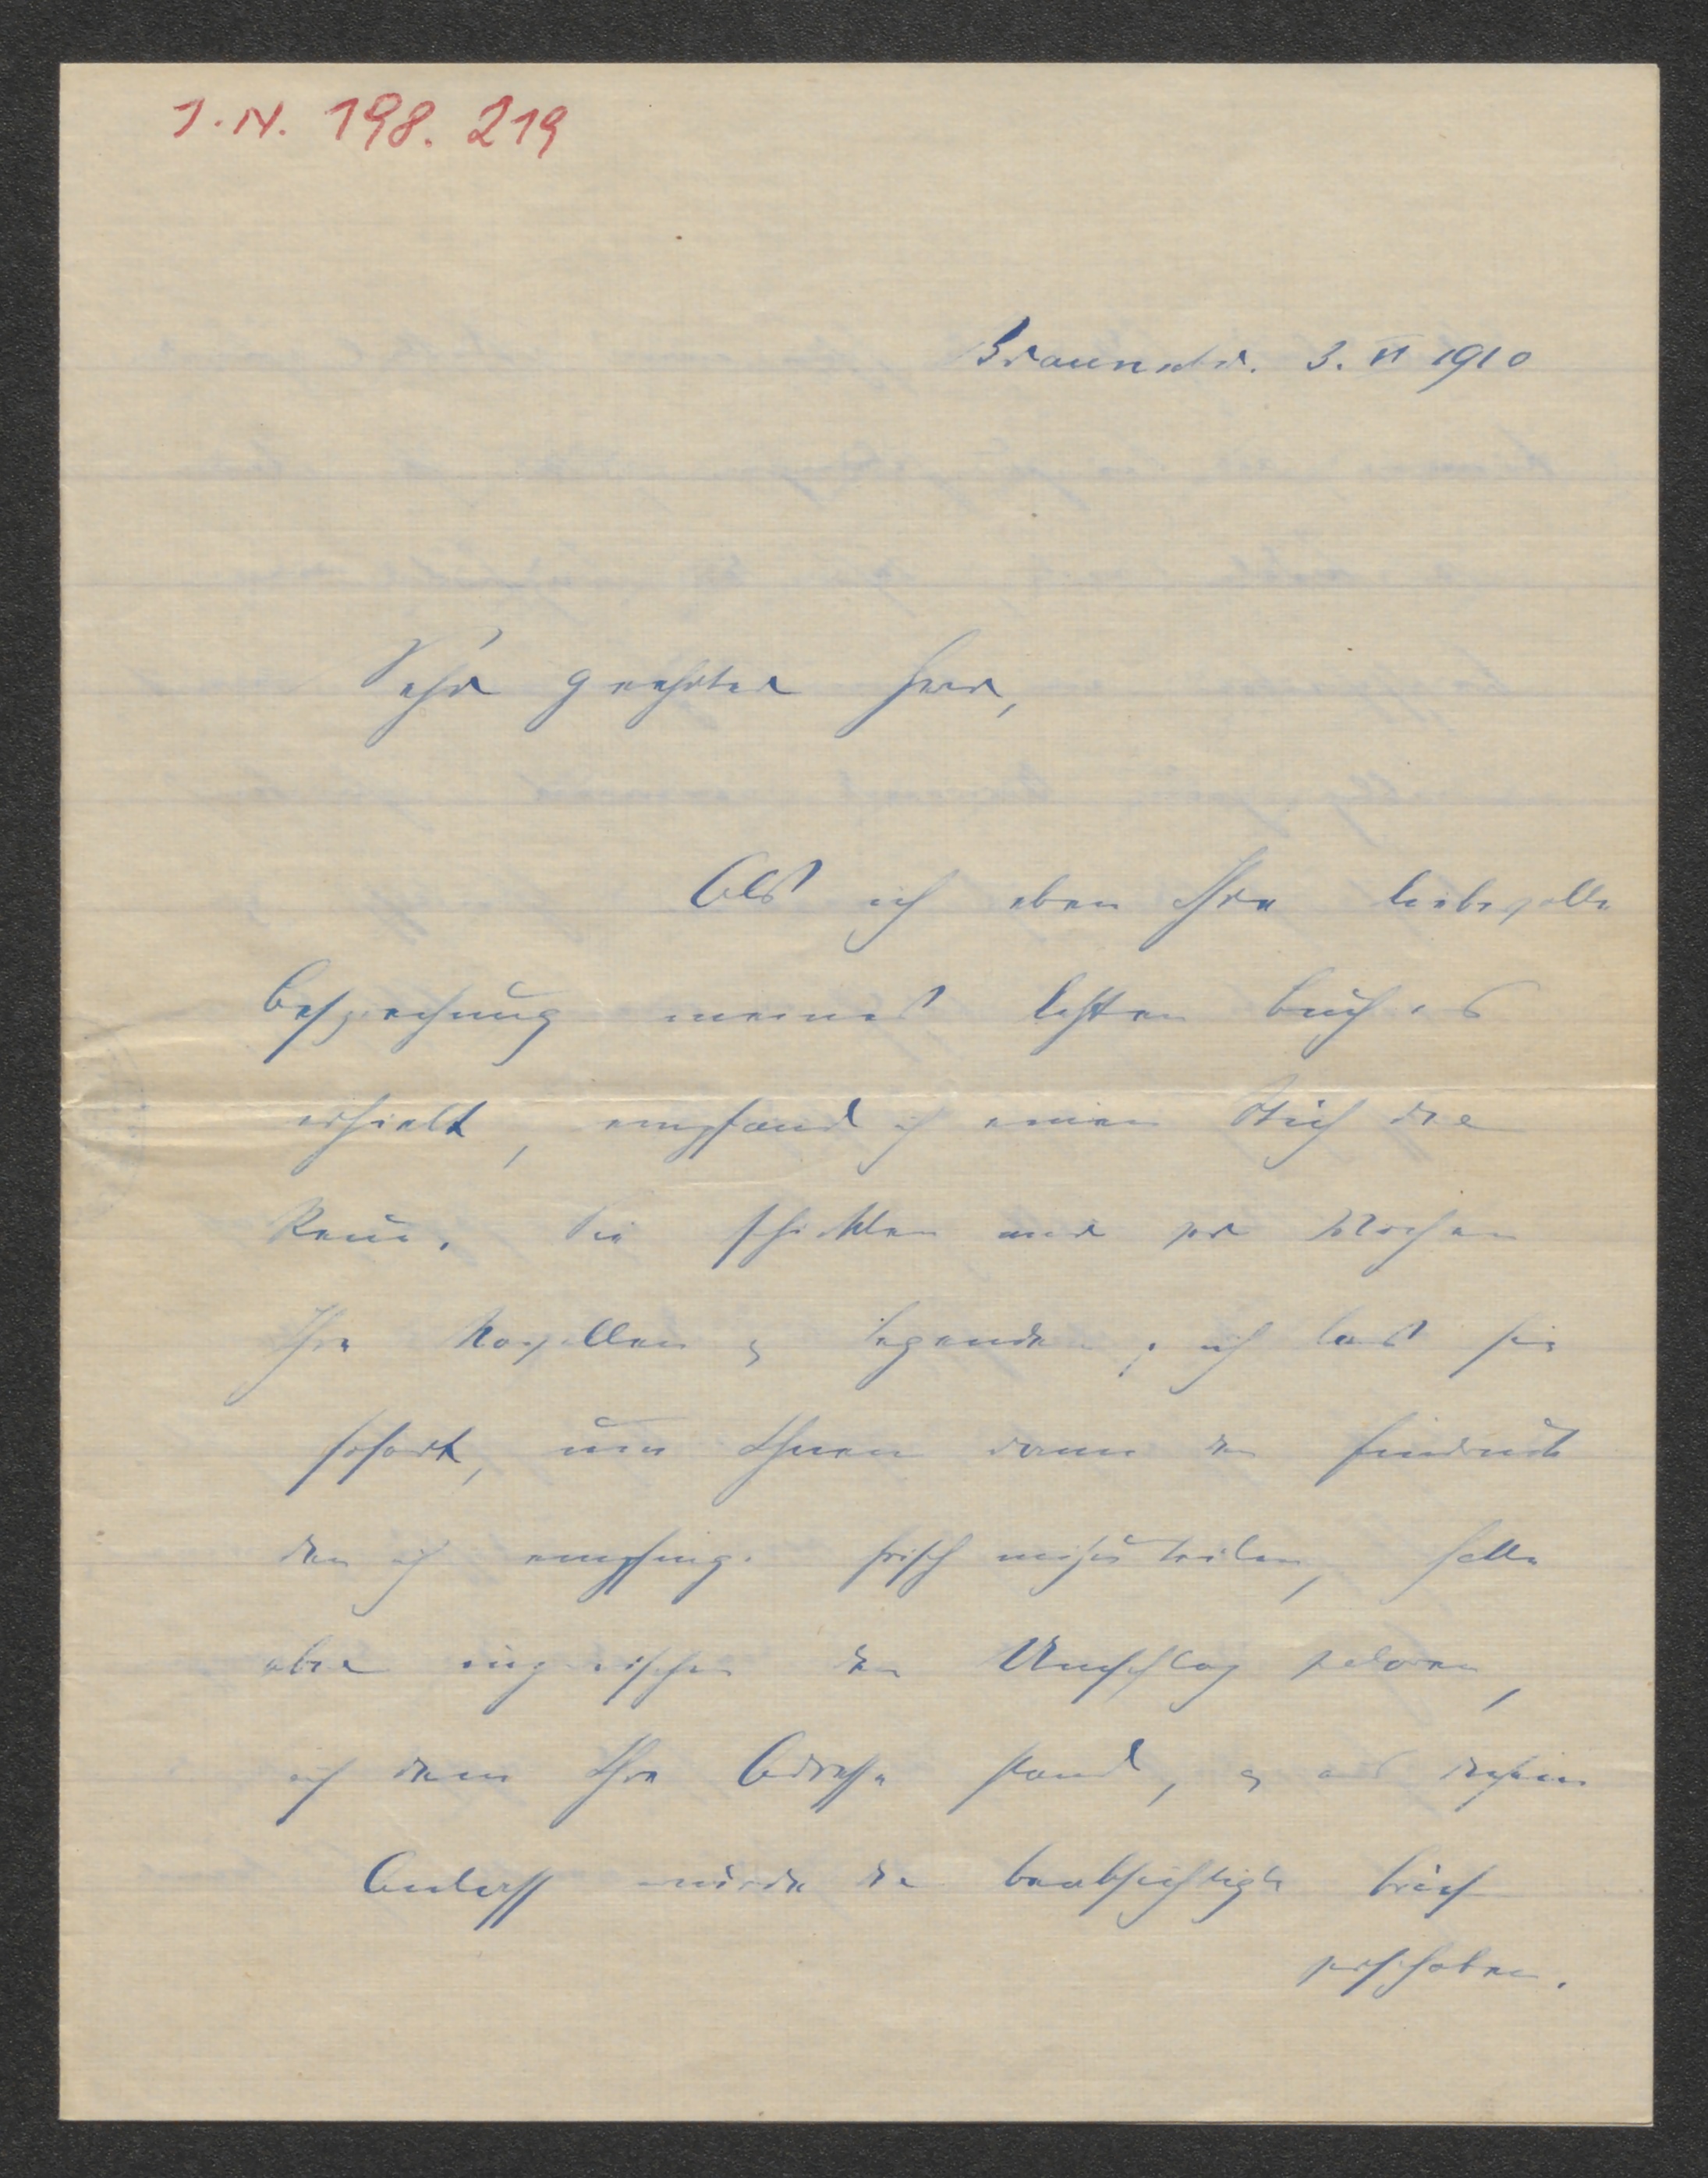 J.N. 198.219
Braunschw. 3. VI 1910
Sehr geehrter Herr,
Als ich eben Ihre liebevolle
Besprechung meines letzten Buches
erhielt, empfand ich einen Stich der
Reue. Sie schickten mir vor Wochen
Ihre Novellen u Legenden; ich las sie
sofort, um Ihnen dann den Eindruck
den ich empfing frisch mitzuteilen, hatte
aber inzwischen den Umschlag verloren,
auf dem Ihre Adresse stand, u aus diesem
Anlass wurde der beabsichtigte Brief
verschoben.